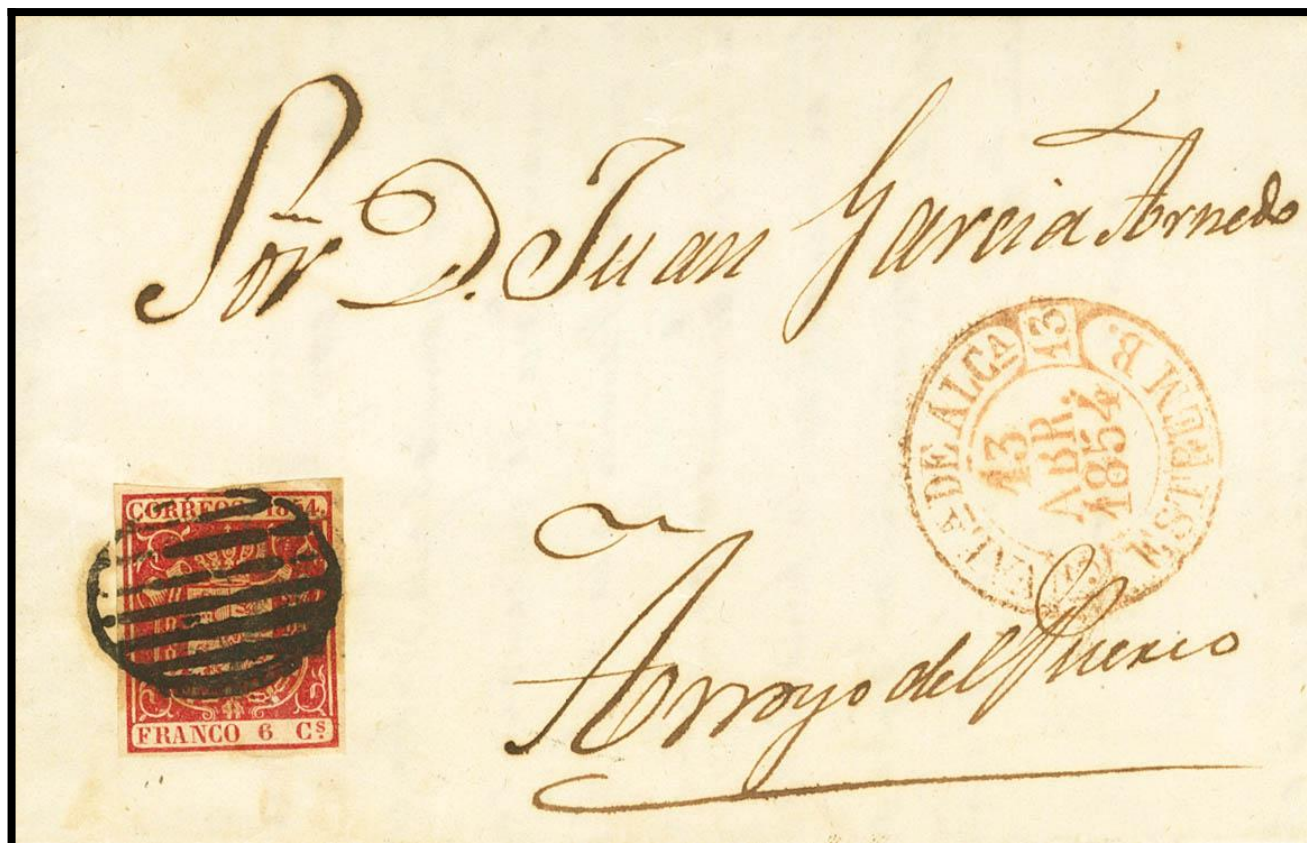 Sor D. Juan Garcia Arnedo
VAL.A DE ALC.A
13
13
ABR.
1854
ESTREM.B.
CORREOS 1854.
FRANCO 6 Cs
Arroyo del Puerco